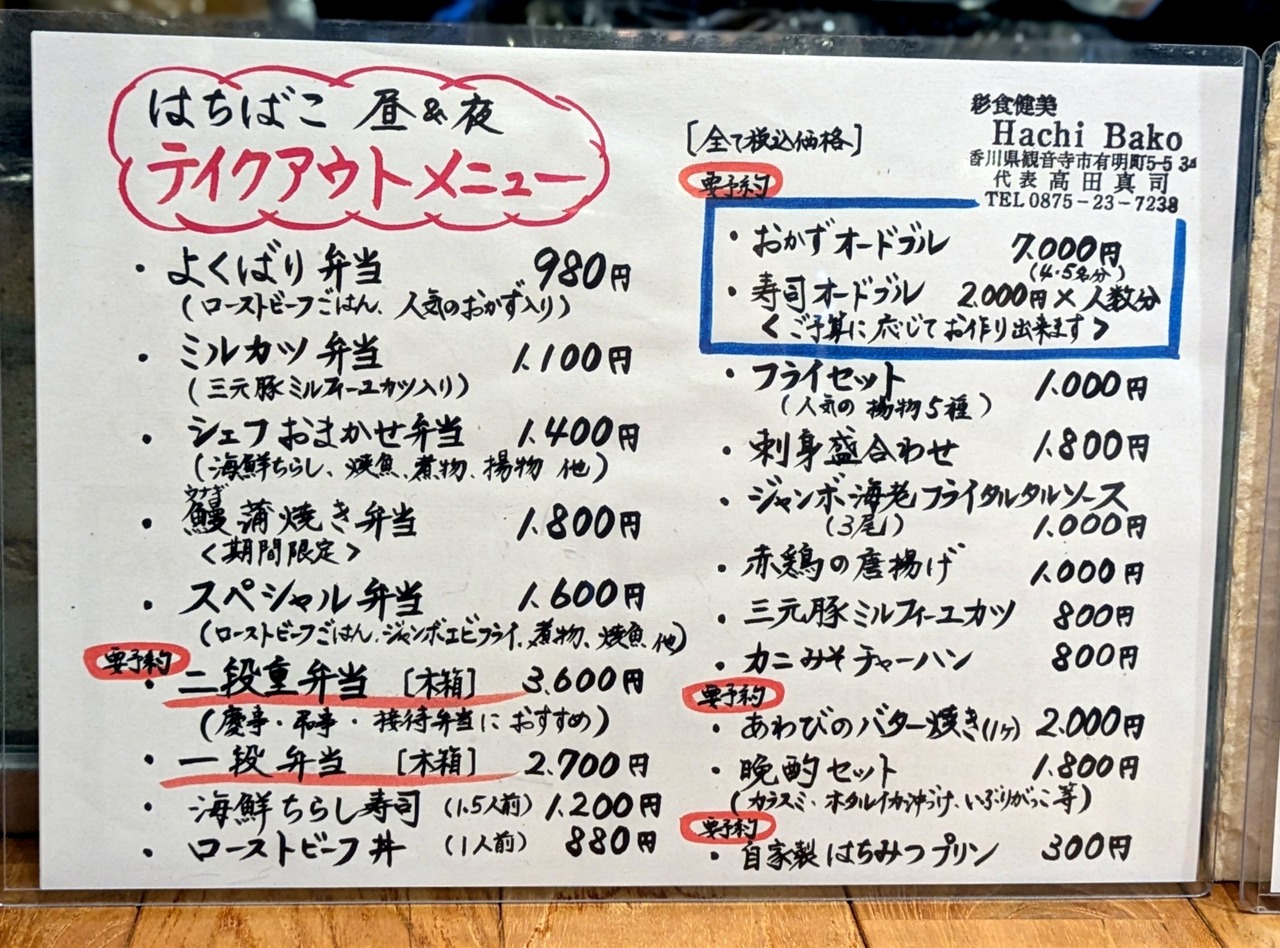 はちばこ 昼&夜
テイクアウトメニュー
・よくばり弁当 980円
(ローストビーフごはん、人気のおかず入り)
・ミルカツ弁当 1.100円
(三元豚ミルフィーユカツ入り)
・シェフおまかせ弁当 1.400円
(海鮮ちらし、焼魚、煮物、揚物 他)
ウナギ
・鰻蒲焼き弁当 1.800円
<期間限定>
・スペシャル弁当 1.600円
(ローストビーフごはん、ジャンボエビフライ、煮物、焼魚 他)
要予約
・二段重弁当 [木箱] 3.600円
(慶事・弔事・接待弁当におすすめ)
・一段弁当 [木箱] 2.700円
・海鮮ちらし寿司 (1.5人前) 1.200円
・ローストビーフ丼 (1人前) 880円
[全て税込価格]
彩食健美
Hachi Bako
香川県観音寺市有明町5-5 3a
代表 高田真司
TEL 0875-23-7238
要予約
・おかずオードブル 7.000円
(4.5名分)
・寿司オードブル 2.000円×人数分
<ご予算に応じてお作り出来ます>
・フライセット 1.000円
(人気の揚物5種)
・刺身盛合わせ 1.800円
・ジャンボ海老フライタルタルソース
(3尾) 1.000円
・赤鶏の唐揚げ 1.000円
・三元豚ミルフィーユカツ 800円
・カニみそチャーハン 800円
要予約
・あわびのバター焼き(1ヶ) 2.000円
・晩酌セット 1.800円
(カラスミ、ホタルイカ沖づけ、いぶりがっこ等)
要予約
・自家製はちみつプリン 300円